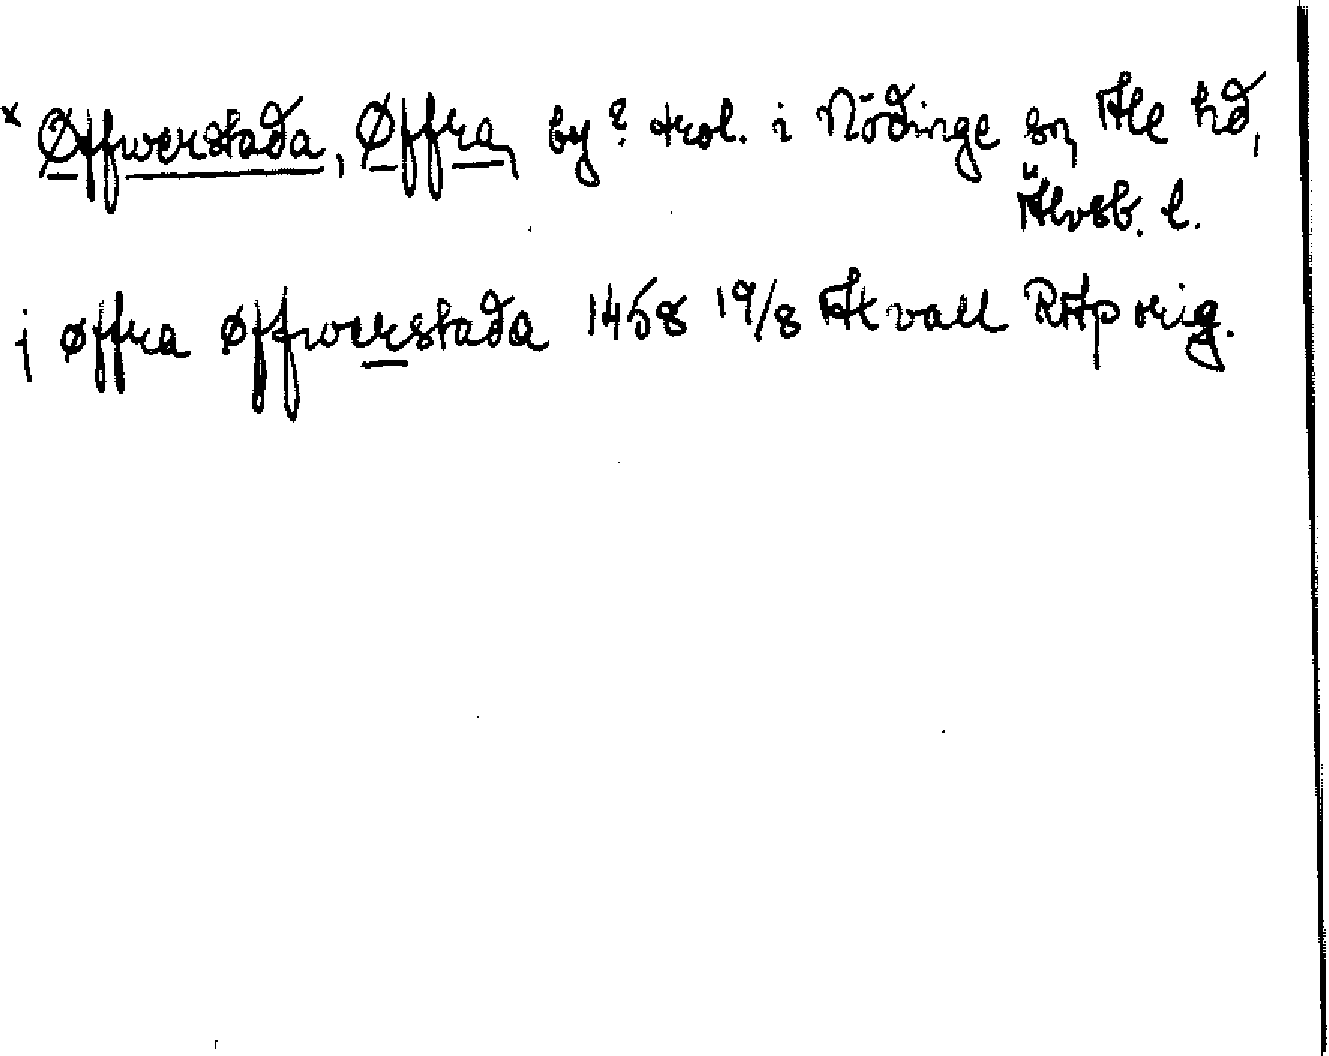 × Øffwerstada, Øffra, by? trol. i Nödinge sn, Ale hd,
Älvsb. l.
j øffra øffwerstada 1458 19/8 Atvall RAp orig.